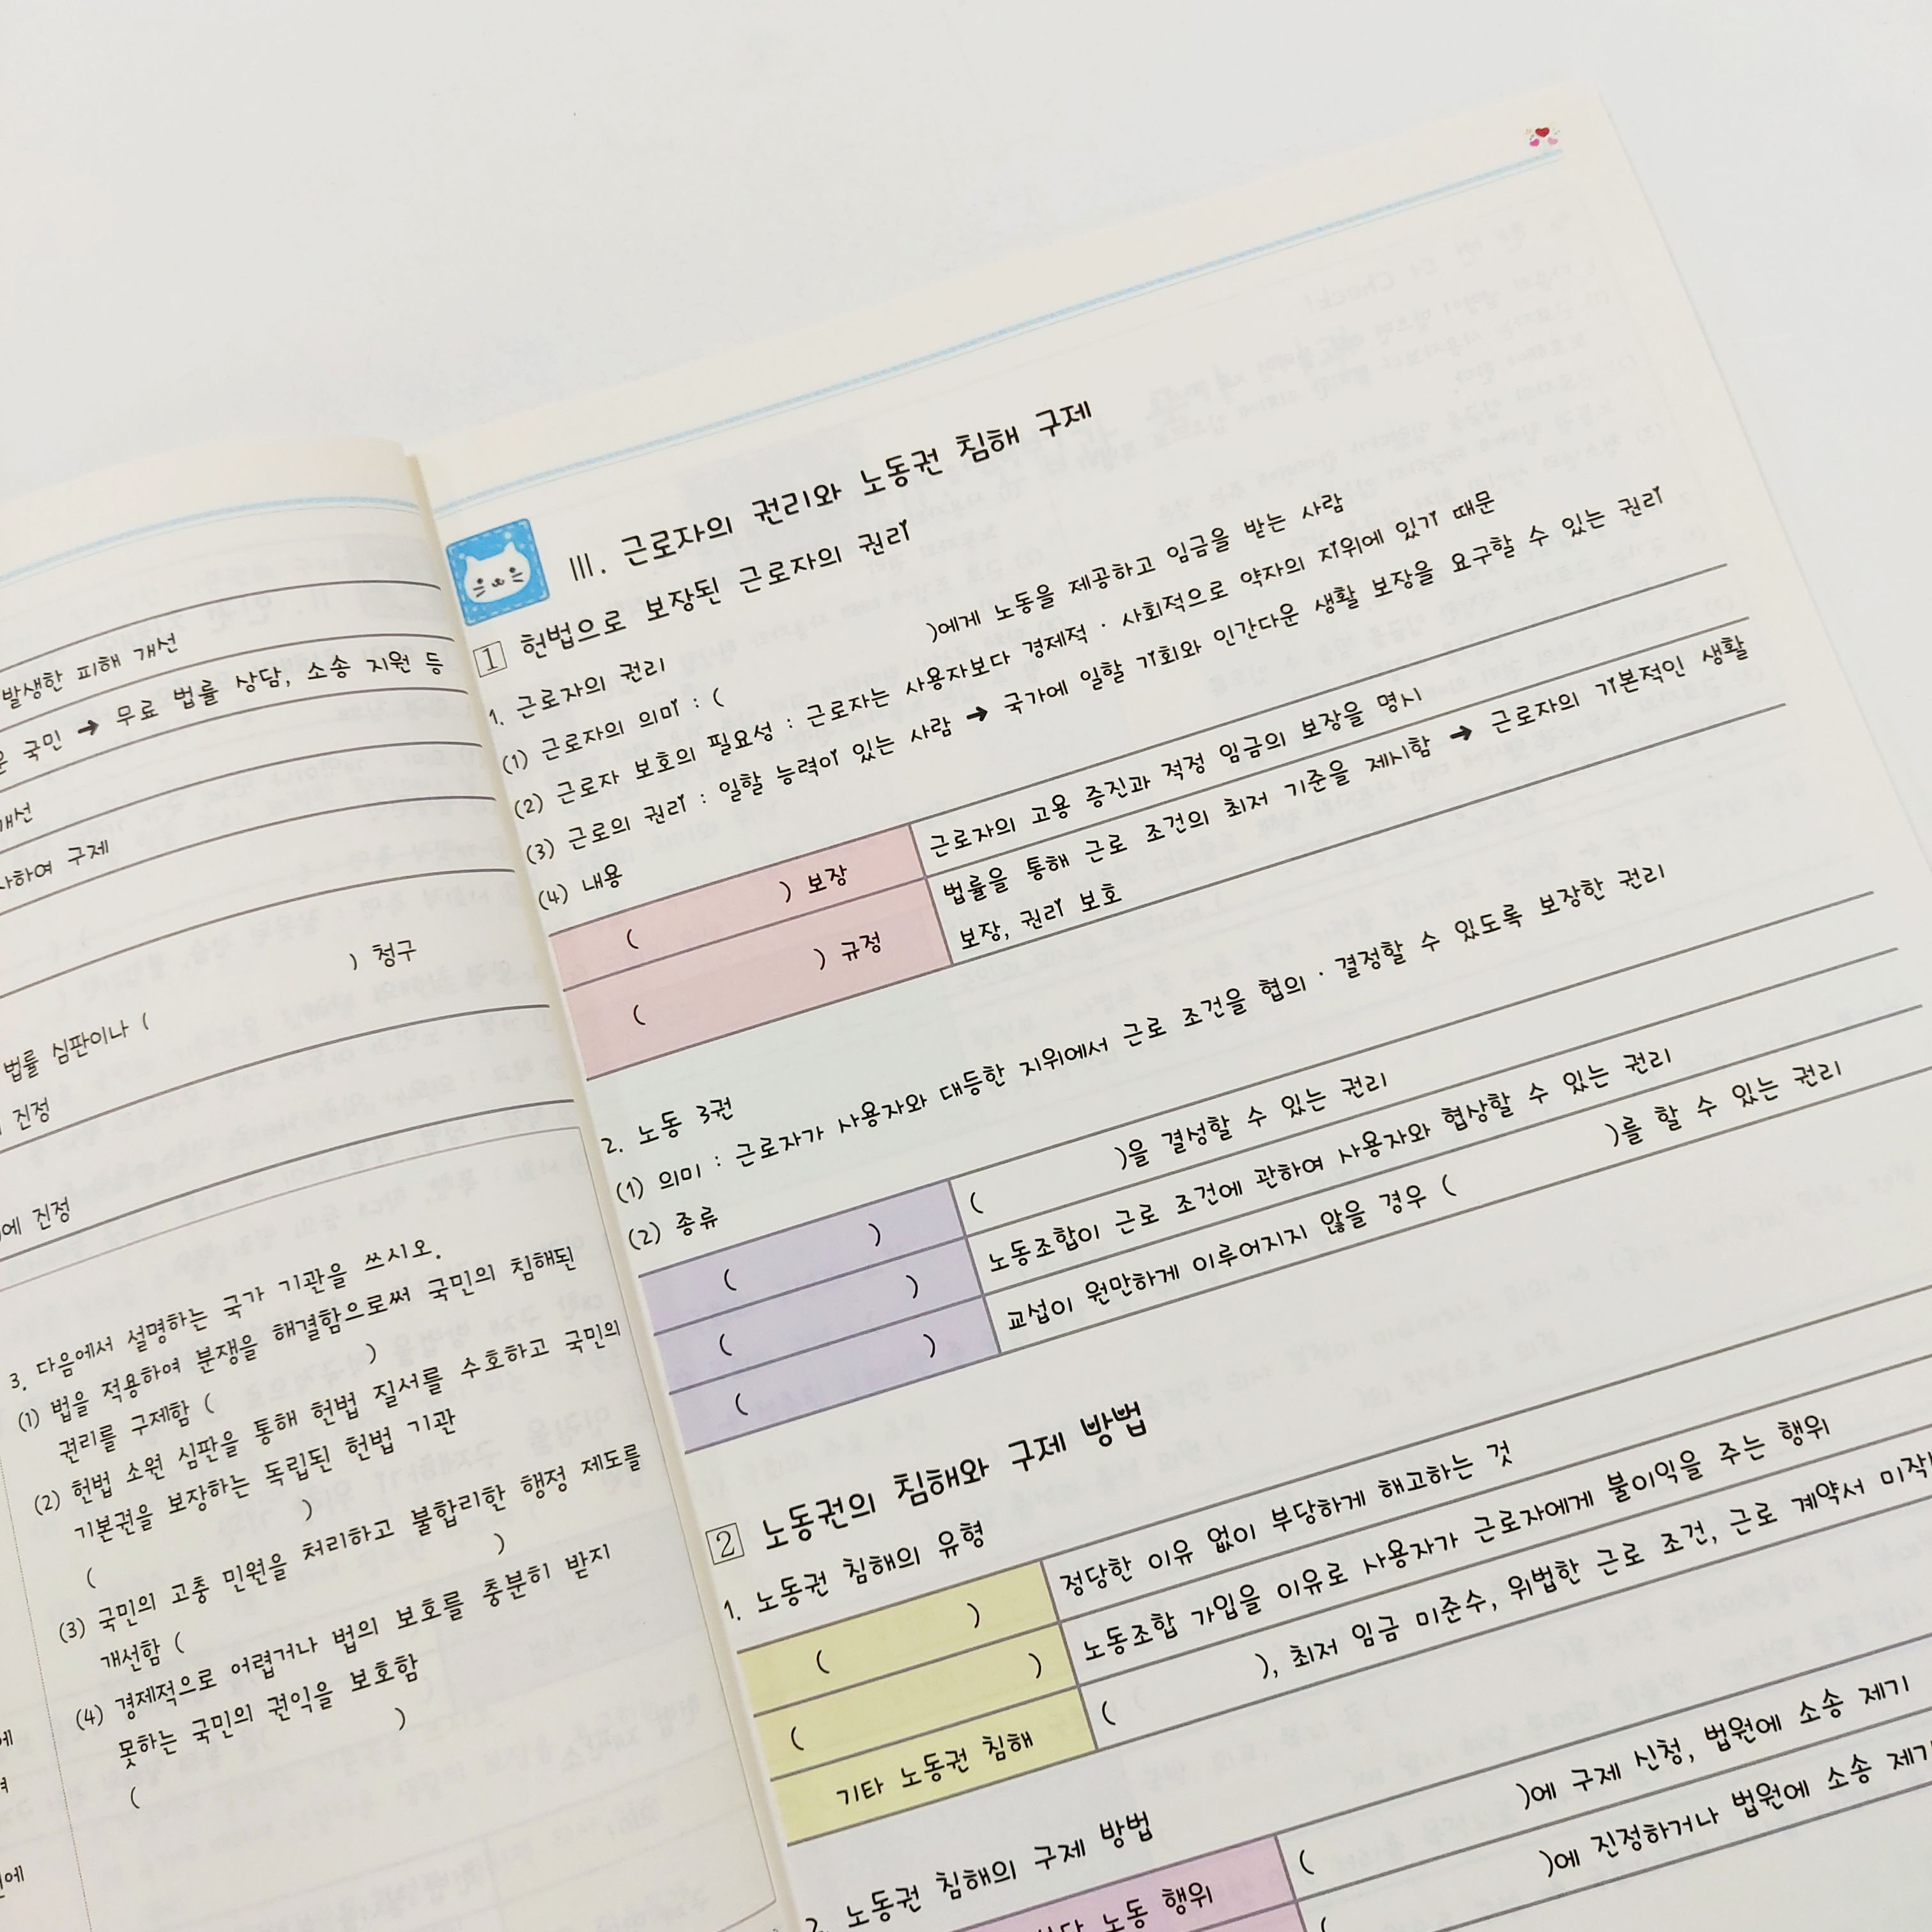 발생한 피해 개선
국민 → 무료 법률 상담, 소송 지원 등
구제
) 청구
법률 심판이나 (
진정
에 진정
3. 다음에서 설명하는 국가 기관을 쓰시오.
(1) 법을 적용하여 분쟁을 해결함으로써 국민의 침해된
권리를 구제함 ( )
(2) 헌법 소원 심판을 통해 헌법 질서를 수호하고 국민의
기본권을 보장하는 독립된 헌법 기관
( )
(3) 국민의 고충 민원을 처리하고 불합리한 행정 제도를
개선함 ( )
(4) 경제적으로 어렵거나 법의 보호를 충분히 받지
못하는 국민의 권익을 보호함
( )
III. 근로자의 권리와 노동권 침해 구제
1 헌법으로 보장된 근로자의 권리
1. 근로자의 권리
(1) 근로자의 의미 : ( )에게 노동을 제공하고 임금을 받는 사람
(2) 근로자 보호의 필요성 : 근로자는 사용자보다 경제적 · 사회적으로 약자의 지위에 있기 때문
(3) 근로의 권리 : 일할 능력이 있는 사람 → 국가에 일할 기회와 인간다운 생활 보장을 요구할 수 있는 권리
(4) 내용
( ) 보장 근로자의 고용 증진과 적정 임금의 보장을 명시
( ) 규정 법률을 통해 근로 조건의 최저 기준을 제시함 → 근로자의 기본적인 생활
보장, 권리 보호
2. 노동 3권
(1) 의미 : 근로자가 사용자와 대등한 지위에서 근로 조건을 협의 · 결정할 수 있도록 보장한 권리
(2) 종류
( ) ( )을 결성할 수 있는 권리
( ) 노동조합이 근로 조건에 관하여 사용자와 협상할 수 있는 권리
( ) 교섭이 원만하게 이루어지지 않을 경우 ( )를 할 수 있는 권리
2 노동권의 침해와 구제 방법
1. 노동권 침해의 유형
( ) 정당한 이유 없이 부당하게 해고하는 것
( ) 노동조합 가입을 이유로 사용자가 근로자에게 불이익을 주는 행위
기타 노동권 침해 ( ), 최저 임금 미준수, 위법한 근로 조건, 근로 계약서
2. 노동권 침해의 구제 방법
노동 행위 ( )에 구제 신청, 법원에 소송 제기
( )에 진정하거나 법원에 소송 제기